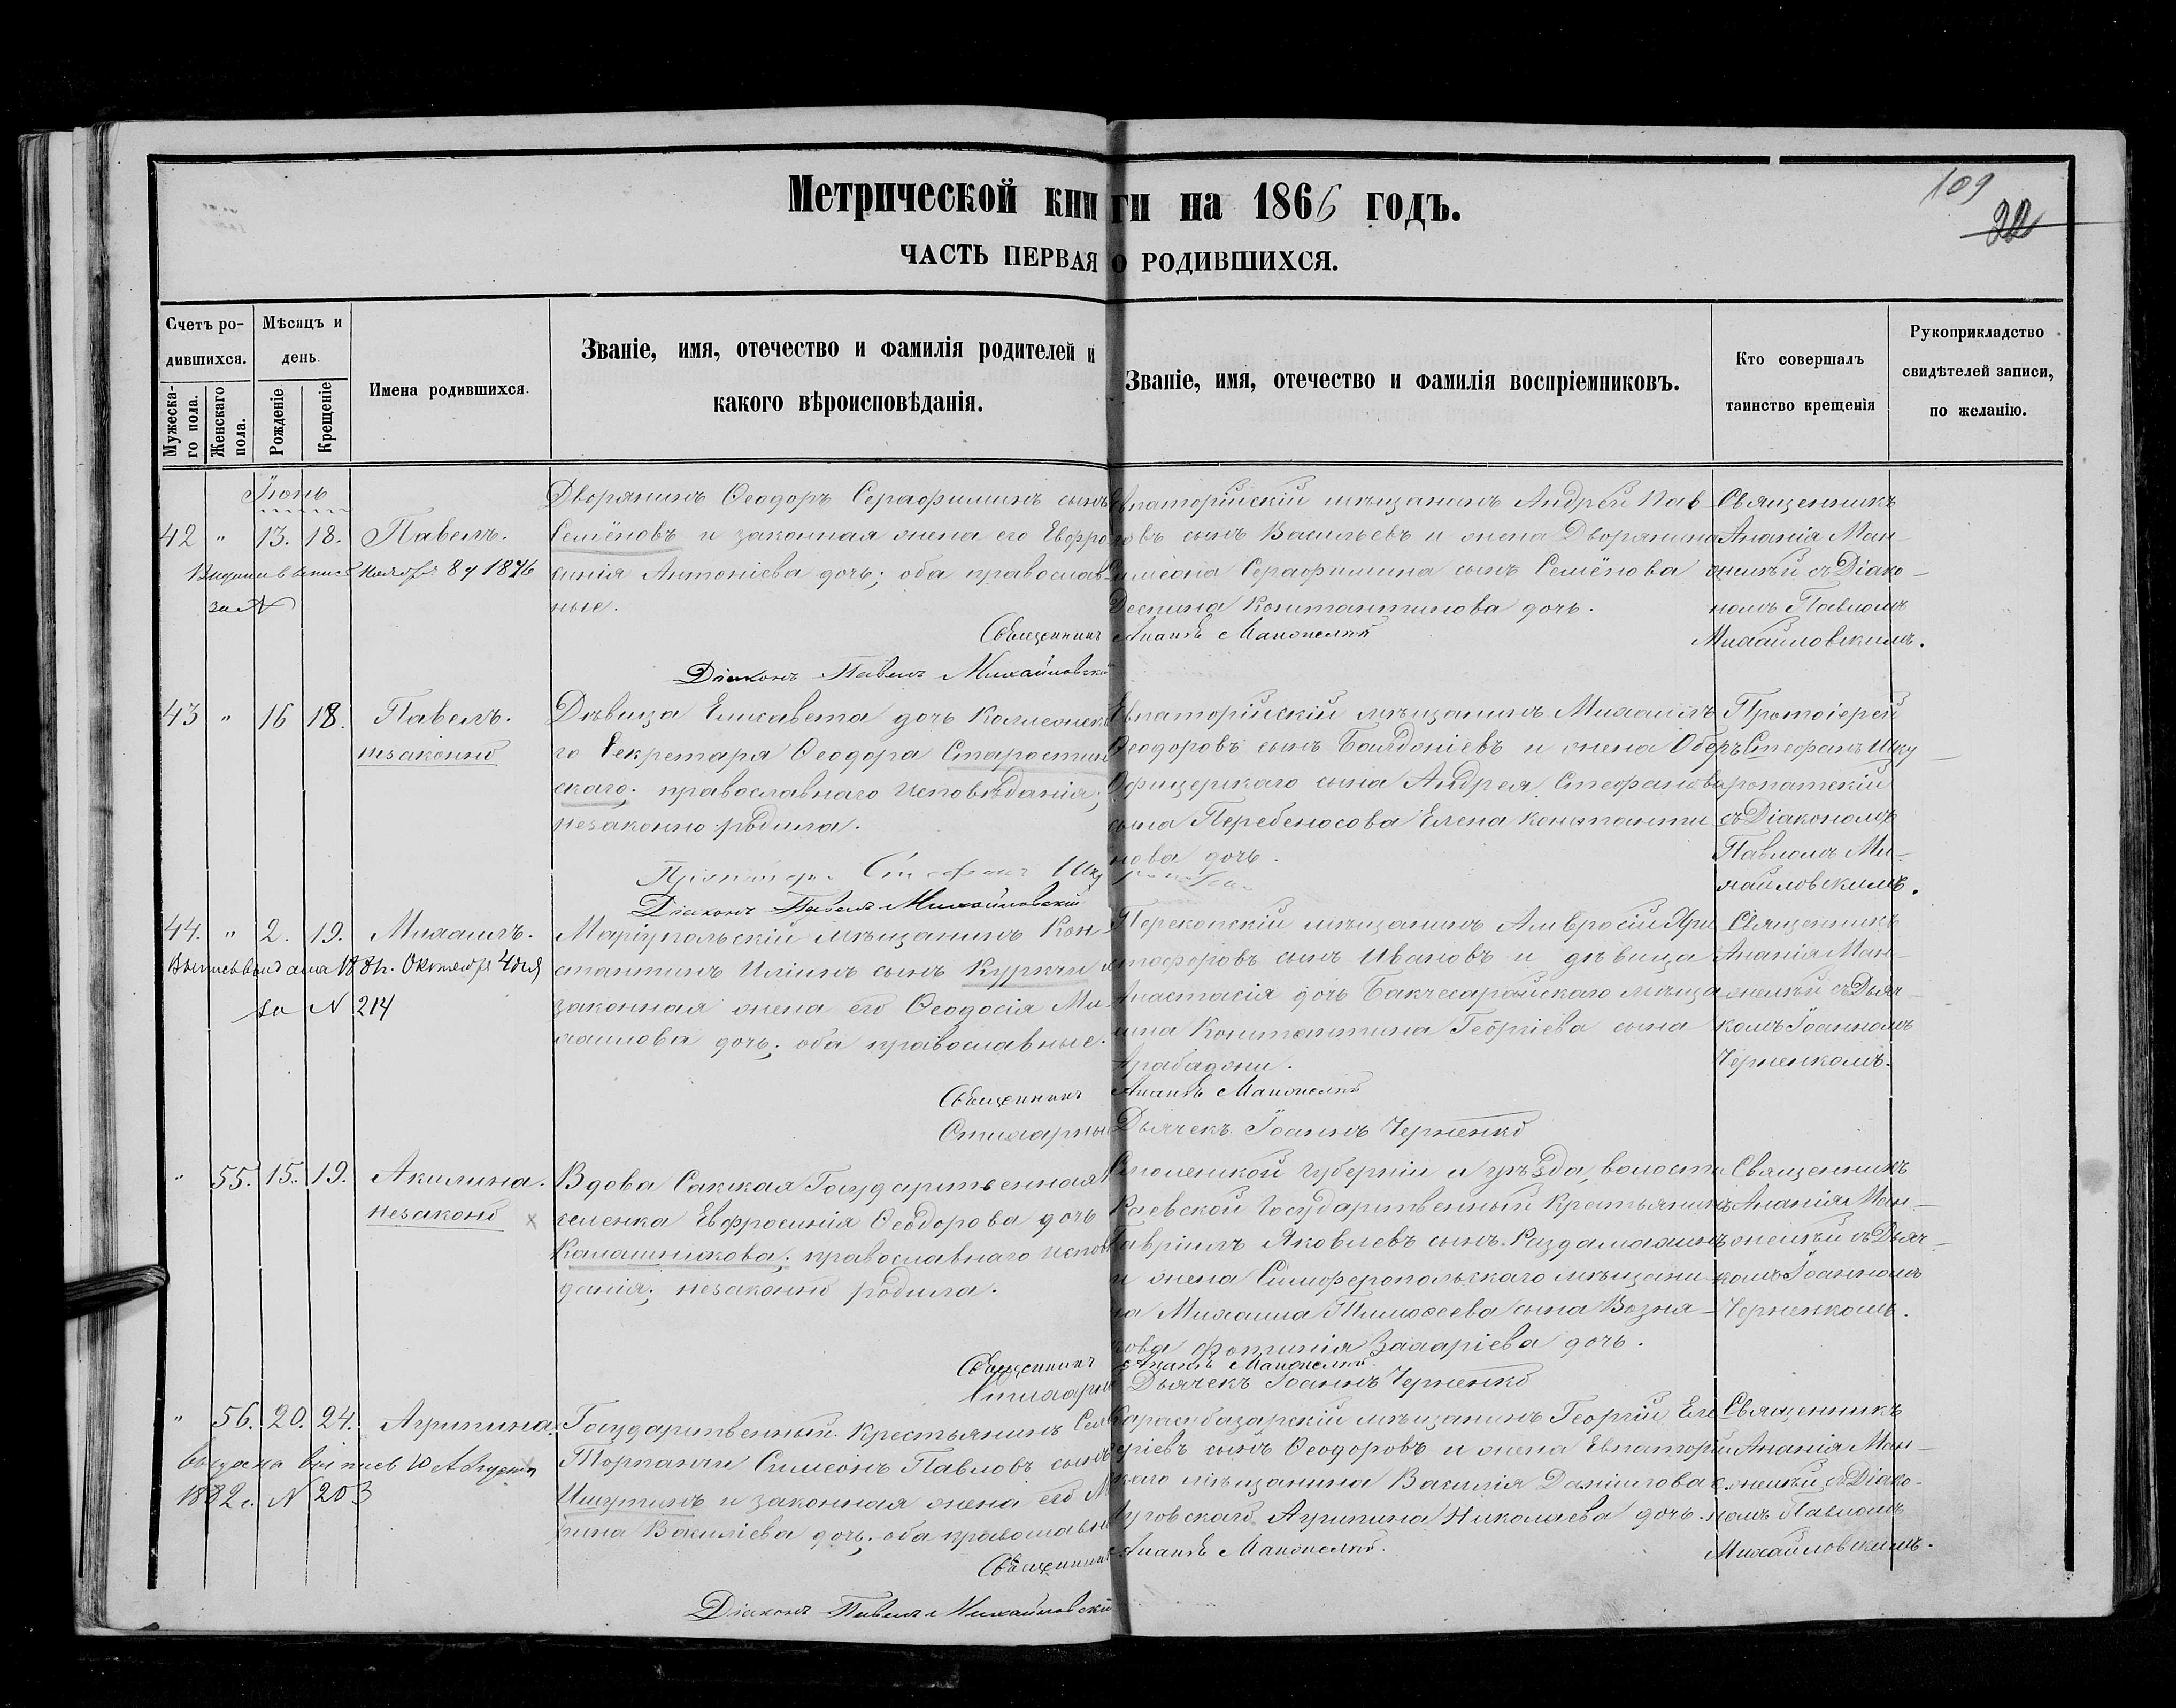 109
22
Метрической книги на 1866 годъ.
ЧАСТЬ ПЕРВАЯ О РОДИВШИХСЯ.
Счетъ ро-
дившихся.
Мужеска-
го пола.
Женскаго
пола.
Мѣсяцъ и
день.
Рожденіе
Крещеніе
Имена родившихся.
Званіе, имя, отечество и фамилія родителей и
какого вѣроисповѣданія.
Званіе, имя, отечество и фамилія воспріемниковъ.
Кто совершалъ
таинство крещенія
Рукоприкладство
свидѣтелей записи,
по желанію.
Іюнь
42 " 13. 18. Павелъ.
Ноября 8 д 1876
за N
Дворянинъ Ѳеодоръ Серафиминъ сынъ
Семёновъ и законная жена его Евфро
синія Антоніева дочь; оба православ-
ные.
Евпаторійскій мѣщанинъ Андрей Пав-
ловъ сынъ Васильевъ и жена Дворянина
Симеона Серафимина сына Семёнова
Деспина Константинова дочь.
Священникъ
Ананія Ман-
желѣй съ Діако-
номъ Павломъ
Михайловскимъ.
Священникъ Ананія Манжелѣй
Діаконъ Павелъ Михайловскій
43 " 16 18. Павелъ.
незаконно
Дѣвица Елисавета дочь Коллежска
го Секретаря Ѳеодора Старостин
скаго; православнаго исповѣданія;
незаконно родила.
Евпаторійскій мѣщанинъ Михаилъ
Ѳеодоровъ сынъ Балджіевъ и жена Оберъ
Офицерскаго сына Андрея Стефанова
сына Перебеносова Елена Константи
нова дочь.
Протоіерей
Стефанъ Шку
ропатскій
съ Діакономъ
Павломъ Ми-
хайловскимъ.
Протоіерей Стефанъ Шкуропатскій
Діаконъ Павелъ Михайловскій
44. " 2. 19. Михаилъ.
Октября 4 дня
за N 214
Маріупольскій мѣщанинъ Кон-
стантинъ Иліинъ сынъ Куркчи и
законная жена его Ѳеодосія Ми-
хаилова дочь; оба православные.
Перекопскій мѣщанинъ Амвросій Хри
стофоровъ сынъ Ивановъ и дѣвица
Анастасія дочь Бакчесарайскаго мѣща
нина Константина Георгіева сына
Арабаджи.
Священникъ
Ананія Ман-
желѣй съ Дьяч-
комъ Іоанномъ
Черненкомъ.
Священникъ Ананія Манжелѣй
Стихарный Дьячекъ Іоаннъ Черненко
" 55. 15. 19. Акилина.
незаконо
Вдова Сакская Государственная По
селенка Евфросинія Ѳеодорова дочь
Калашникова; православнаго исповѣ
данія; незаконно родила.
Смоленской Губерніи и уѣзда, волости
Каевской Государственный Крестьянинъ
Гавріилъ Яковлевъ сынъ Раздамахинъ
и жена Симферопольскаго мѣщани
на Михаила Тимоѳеева сына Возня-
кова Фотинія Захаріева дочь.
Священникъ
Ананія Ман-
желѣй съ Дьяч-
комъ Іоанномъ
Черненкомъ.
Священникъ Ананія Манжелѣй.
Стихарный Дьячекъ Іоаннъ Черненко
" 56. 20. 24. Агрипина.
выдана выпись 10 Августа
1882 г. N 203
Государственный Крестьянинъ Села
Торпанчи Симеонъ Павловъ сынъ
Ишутинъ и законная жена его Ма
рина Василіева дочь; оба православные
Карасубазарскій мѣщанинъ Георгій Еле
ѳеріевъ сынъ Ѳеодоровъ и жена Евпаторій
скаго мѣщанина Василія Даніилова с.
Луговскаго Агрипина Николаева дочь.
Священникъ
Ананія Ман-
желѣй съ Діако-
номъ Павломъ
Михайловскимъ.
Священникъ Ананія Манжелѣй.
Діаконъ Павелъ Михайловскій